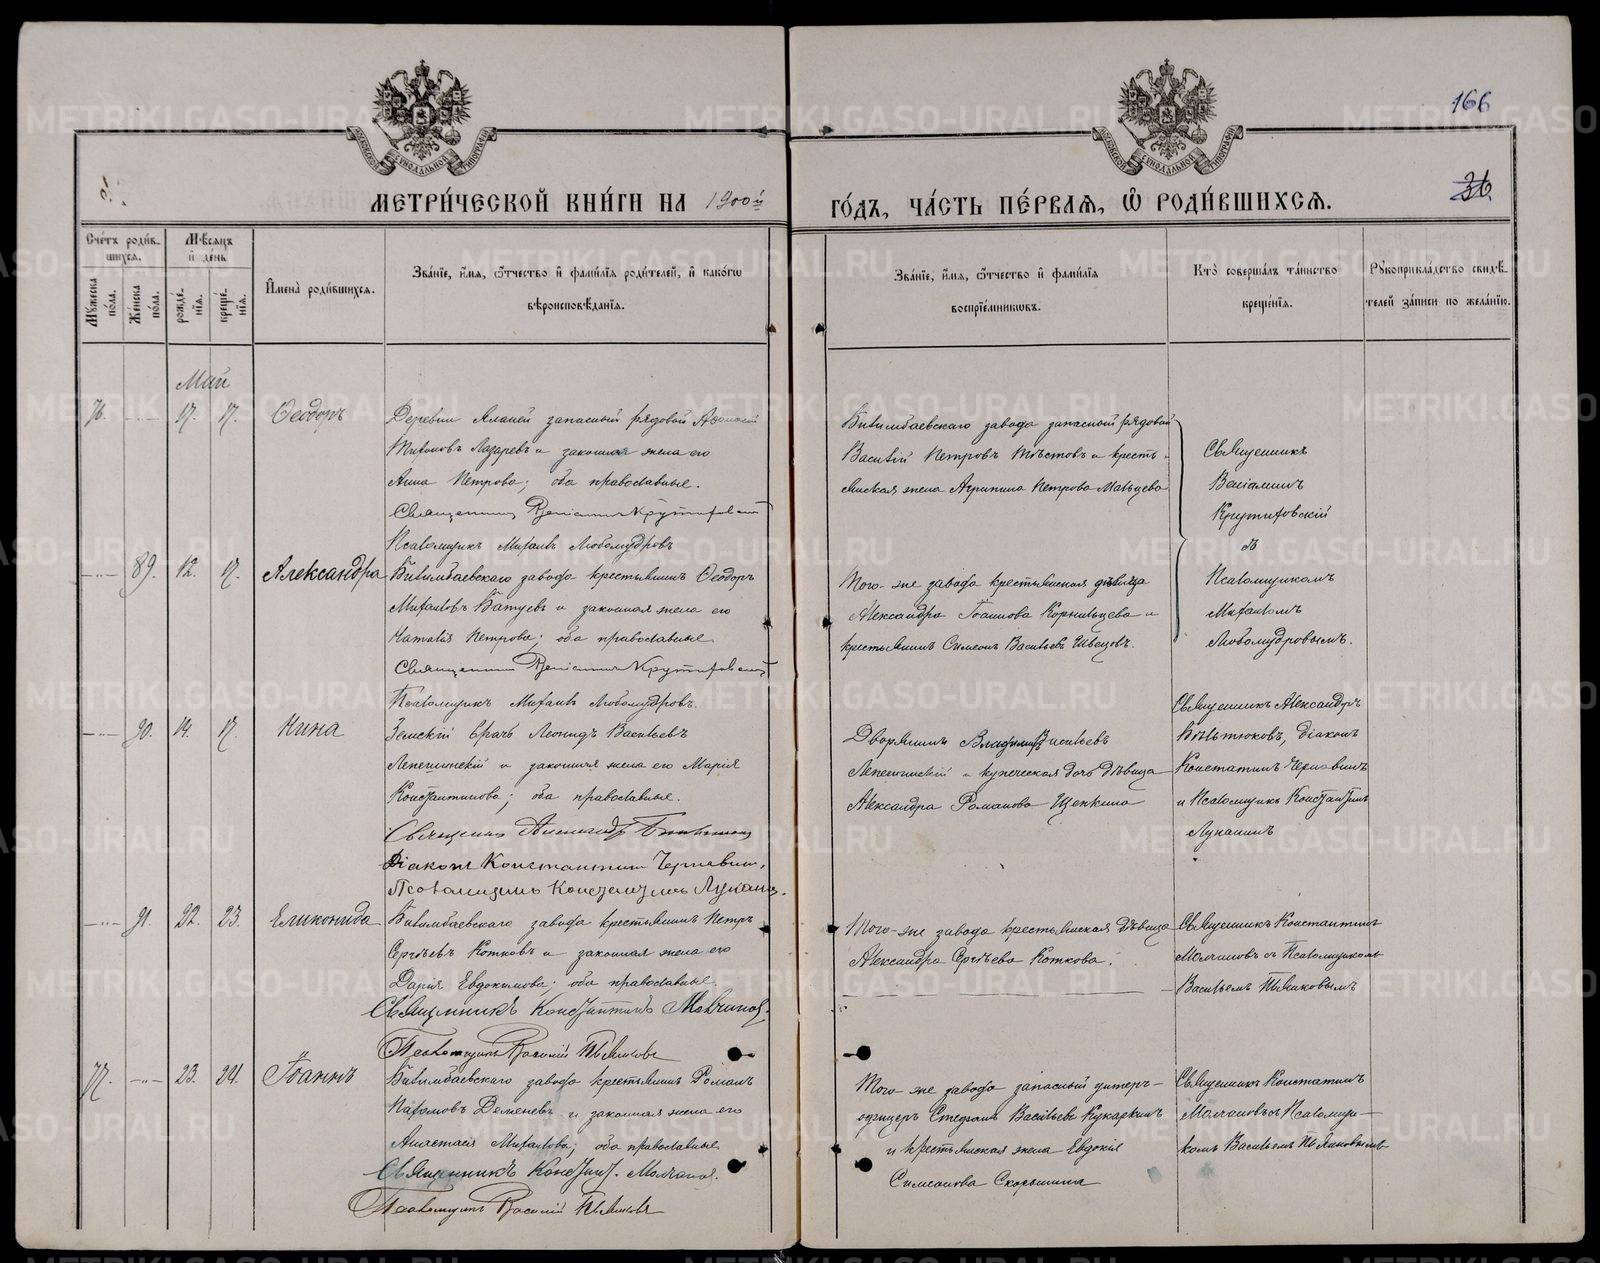 166
36.
МЕТРИ́ЧЕСКОЙ КНИ́ГИ НА 1900й
ГО́ДЪ, ЧА́СТЬ ПЕ́РВАѦ, Ѡ РОДИ́ВШИХСѦ.
Сче́тъ роди́в-
шихсѧ.
Мѣ́сѧцъ
и҆ де́нь
Мꙋ́жеска
по́ла.
Же́нска
по́ла.
рожде́-
нїѧ.
креще́-
нїѧ.
И҆мена̀ роди́вшихсѧ.
Зва́нїе, и҆́мѧ, ѻ҆́тчество и҆ фами́лїѧ роди́телей, и҆ како́гѡ
вѣроисповѣ́данїѧ.
Зва́нїе, и҆́мѧ, ѻ҆́тчество и҆ фами́лїѧ
воспрїе́мникѡвъ.
Кто̀ соверша́лъ та́инство
креще́нїѧ.
Рꙋкоприкла́дство свидѣ́-
телей за́писи по жела́нїю.
Май
76. 17. 17. Ѳеодоръ
Деревни запасный рядовой
Лазаревъ и законная жена его
Анна Петрова; оба православные.
Священникъ Веніаминъ Крутиховскій
Псаломщикъ Михаилъ Любомудровъ
Билимбаевскаго завода запасный рядовой
Василій Петровъ и кресть-
янская жена Агрипина Петрова Мальцева
Священникъ
Веніаминъ
Крутиховскій
съ
Псаломщикомъ
Михаиломъ
Любомудровымъ.
89. 12. 17. Александра
Билимбаевскаго завода крестьянинъ Ѳеодоръ
Михайловъ и законная жена его
Наталія Петрова; оба православные
Священникъ Веніаминъ Крутиховскій
Псаломщикъ Михаилъ Любомудровъ.
Того-же завода крестьянская дѣвица
Александра Іоаннова Корнильцева и
крестьянинъ Симеонъ Васильевъ Швецовъ.
90. 14. 17. Нина
Земскій врачъ Леонидъ Васильевъ
Лепешинскій и законная жена его Марія
Константинова; оба православные.
Священникъ Александръ
Діаконъ Константинъ Чернавинъ,
Псаломщикъ Константинъ Луканинъ.
Дворянинъ Владиміръ Васильевъ
Лепешинскій и купеческая дочь дѣвица
Александра Романова Щепкина
Священникъ Александръ
Бѣльтюковъ, діаконъ
Константинъ Чернавинъ
и Псаломщикъ Константинъ
Луканинъ
91. 22. 23. Еликонида
Билимбаевскаго завода крестьянинъ Петръ
Сергѣевъ Котковъ и законная жена его
Дарія Евдокимова; оба православные.
Священникъ Константинъ Молчановъ.
Псаломщикъ Василій Пьянковъ
Того-же завода крестьянская дѣвица
Александра Сергѣева Коткова.
Священникъ Константинъ
Молчановъ съ Псаломщикомъ
Васильемъ Пьянковымъ
77. 23. 24. Іоаннъ
Билимбаевскаго завода крестьянинъ Романъ
Пахомовъ Деменевъ и законная жена его
Анастасія Михайлова; оба православные
Священникъ Констант. Молчанов.
Псаломщикъ Василій Пьянковъ
Того-же завода запасный унтеръ-
офицеръ Стефанъ Васильевъ Кукаркинъ
и крестьянская жена Евдокія
Симеонова Скорынина
Священникъ Константинъ
Молчановъ съ Псаломщи-
комъ Васильемъ Пьянковымъ
METRIKI.GASO-URAL.RU